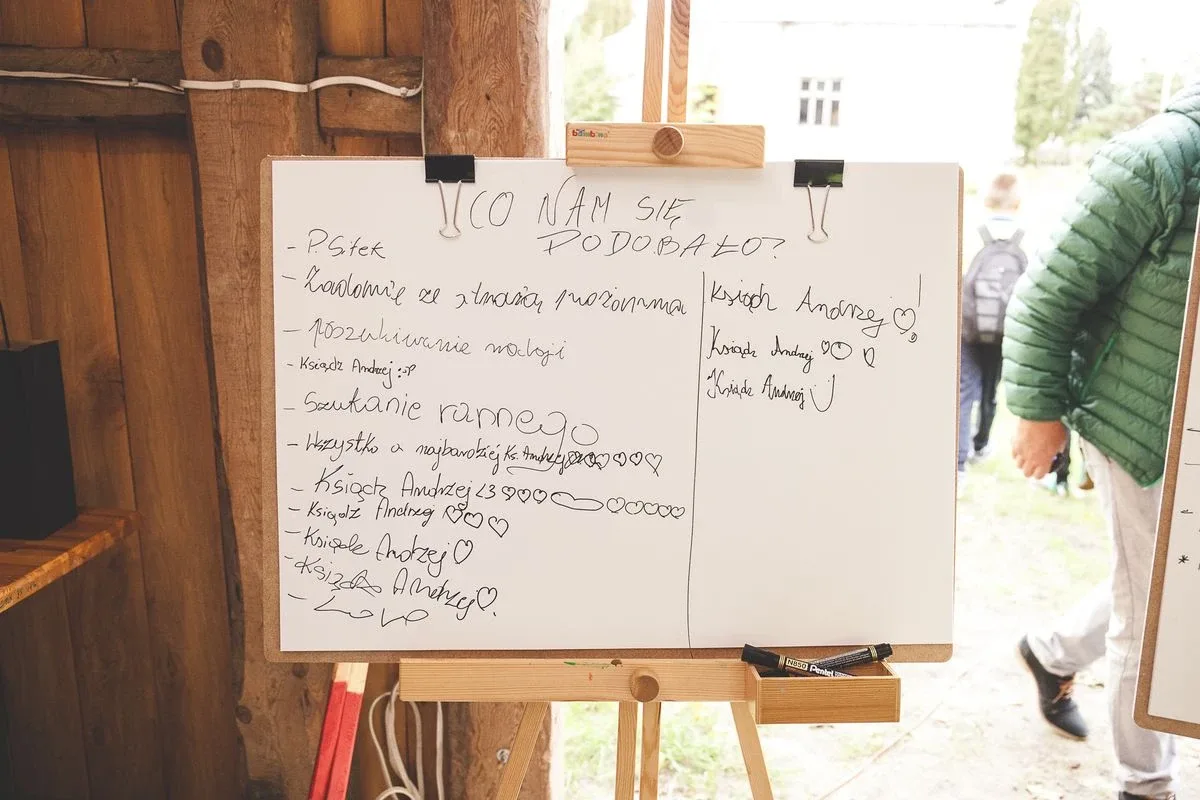 bambino
CO NAM SIĘ
PODOBAŁO?
- P. Sitek
- Zadomię ze strażą pożarma
- poszukiwanie nadziji
- Ksiądz Andrzej :-P
- Szukanie rannego
- Wszystko a najbardziej Ks. Andrzej ♡♡♡♡♡♡
- Ksiądz Andrzej <3 ♡♡♡ ♡♡♡♡♡
- Ksiądz Andrzej ♡♡♡
- Ksiądz Andrzej ♡
- Ksiądz Andrzej ♡.
- Love
Ksiądz Andrzej ♡!
Ksiądz Andrzej ♡
Ksiądz Andrzej
N850 Pentel